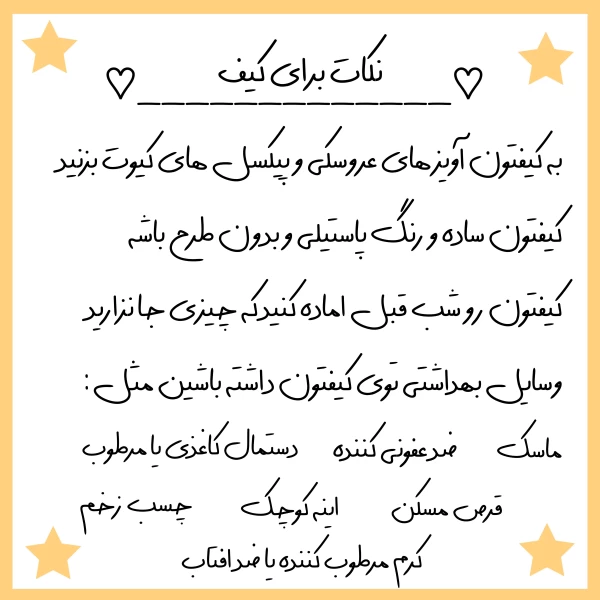 نکات برای کیف
♡_____________♡
به کیفتون آویزهای عروسکی و پیکسل های کیوت بزنید
کیفتون ساده و رنگ پاستیلی و بدون طرح باشه
کیفتون رو شب قبل اماده کنیدکه چیزی جا نزارید
وسایل بهداشتی توی کیفتون داشته باشین مثل :
ماسک ضدعفونی کننده دستمال کاغذی یا مرطوب
قرص مسکن اینه کوچک چسب زخم
کرم مرطوب کننده یا ضد افتاب